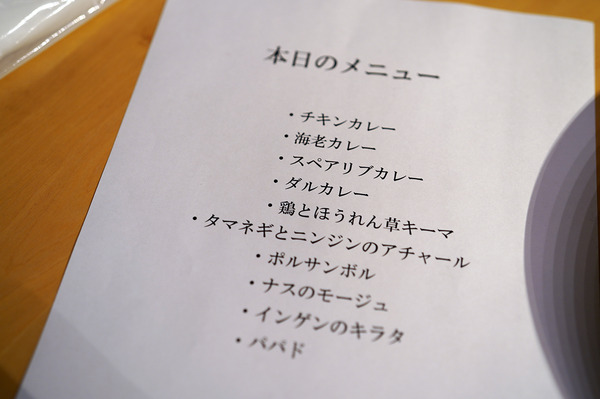 本日のメニュー
・チキンカレー
・海老カレー
・スペアリブカレー
・ダルカレー
・鶏とほうれん草キーマ
・タマネギとニンジンのアチャール
・ポルサンボル
・ナスのモージュ
・インゲンのキラタ
・パパド